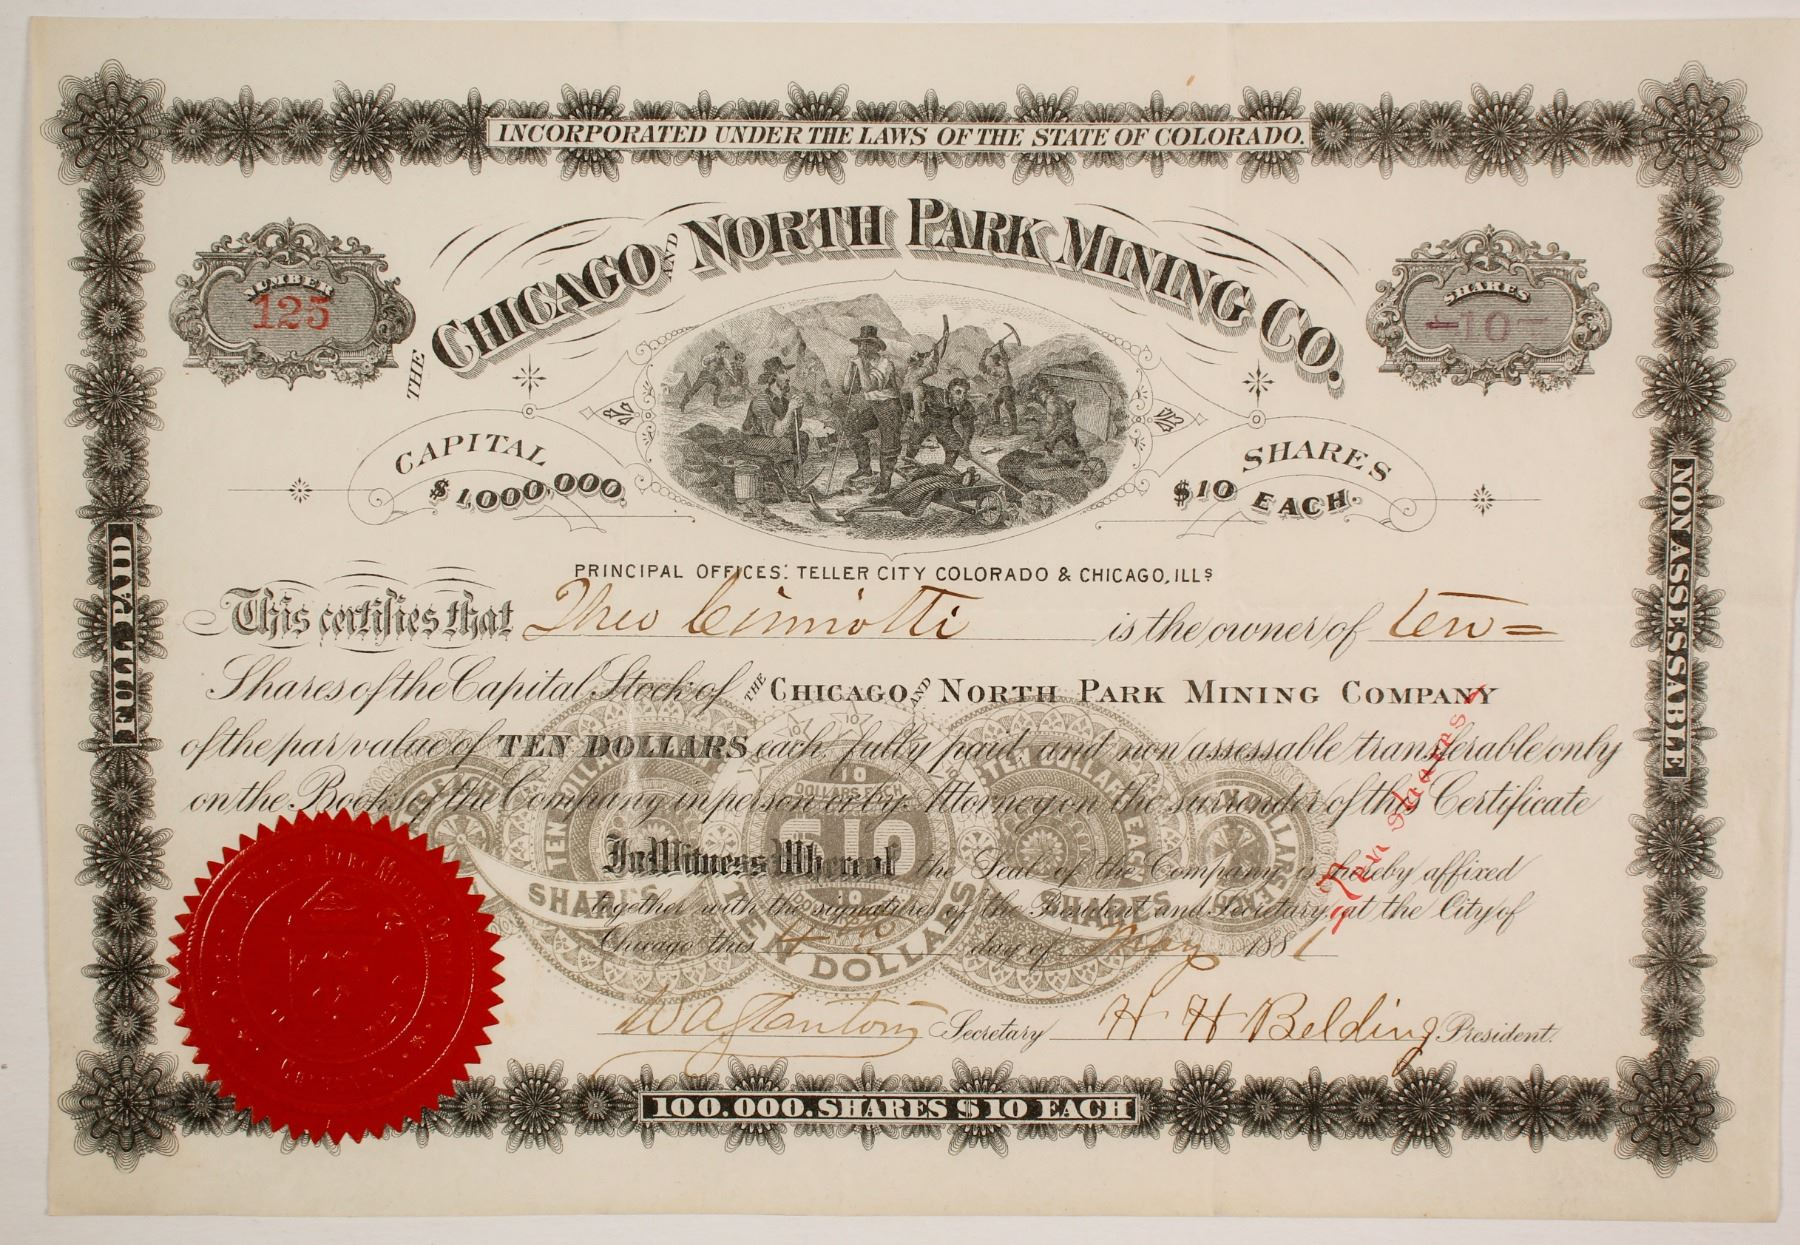 INCORPORATED UNDER THE LAWS OF THE STATE OF COLORADO.
THE CHICAGO AND NORTH PARK MINING CO.
NUMBER
125
SHARES
10
CAPITAL
$1,000,000.
SHARES
$10 EACH.
PRINCIPAL OFFICES: TELLER CITY COLORADO & CHICAGO, ILLS
This certifies that Theo Cimiotti is the owner of ten =
Shares of the Capital Stock of THE CHICAGO AND NORTH PARK MINING COMPANY
of the par value of TEN DOLLARS each, fully paid and non assessable transferable only
on the Books of the Company in person or by Attorney on the surrender of this Certificate
In Witness Whereof the Seal of the Company is hereby affixed
together with the signatures of the President and Secretary, at the City of
Chicago this 4th day of May 1881
Secretary H H Belding President.
100.000. SHARES $10 EACH
FULL PAID
NON ASSESSABLE
Ten shares
10
DOLLARS EACH
10
TEN DOLLARS EACH
TEN DOLLARS EACH
SHARES
SHARES
TEN DOLLARS